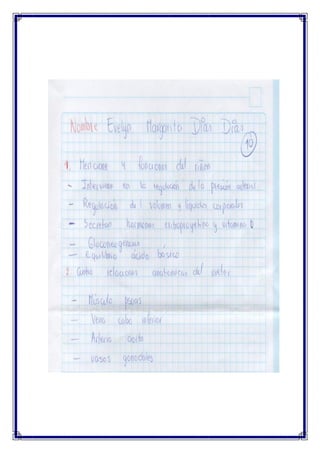 Nombre Evelyn Margarita Días Días
10
1. Mencione 4 funciones del riñon
- Intervienen en la regulación de la presión arterial
- Regulación de volumen y liquidos corporales
- Secretan hormonas eritropoyetina y vitamina D
- Gloconeogenesis
- Equilibrio acido básico
2. Cuatro relaciones anatomicas del ureter
- Músculo psoas
- Vena caba inferior
- Arteria aorta
- vasos gonadales